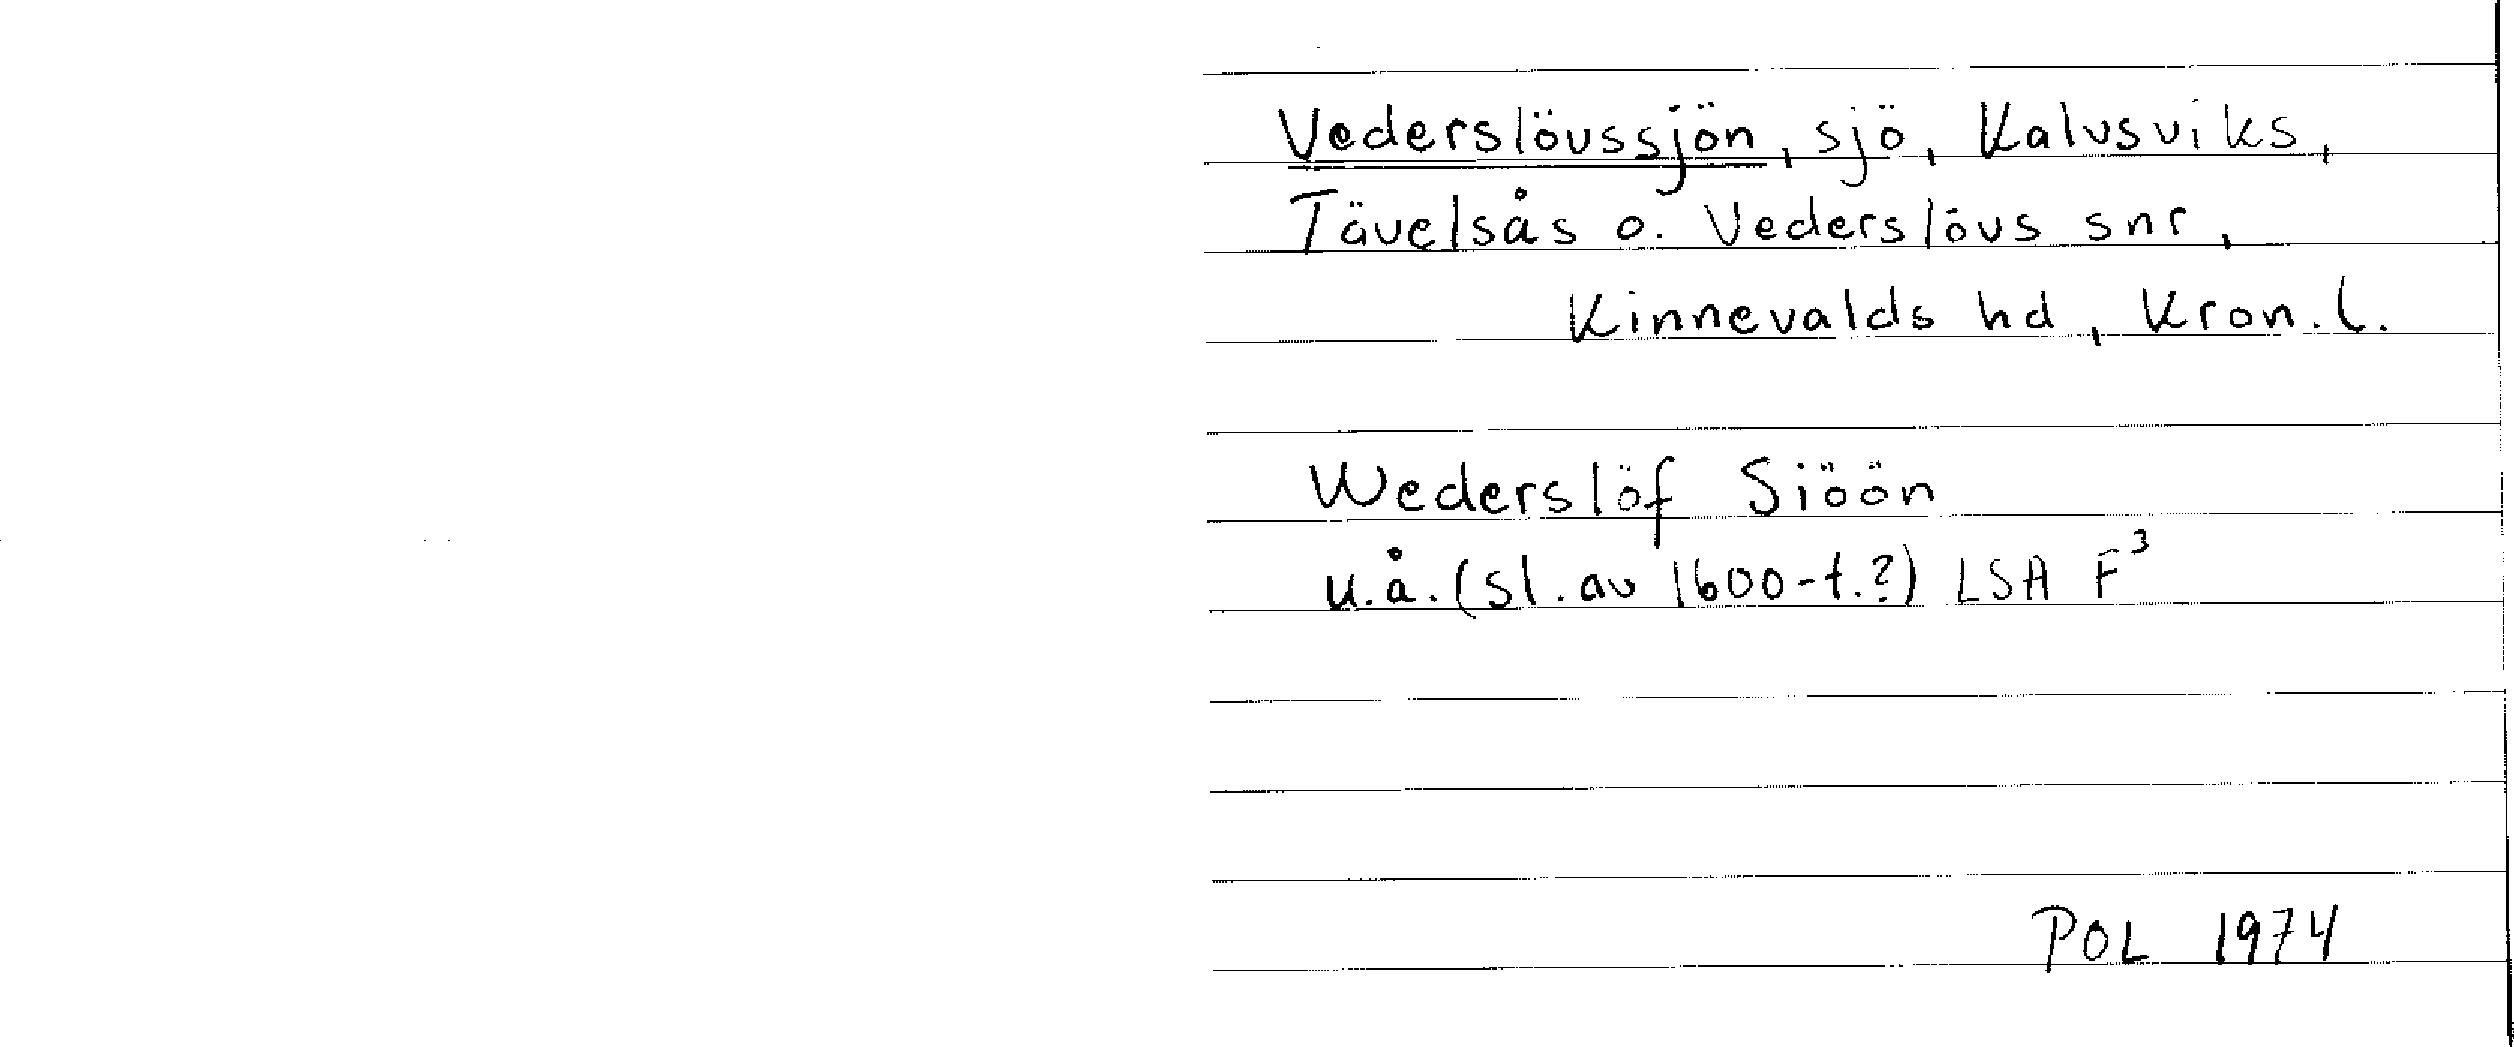 Vederslövssjön, sjö, Kalvsviks,
Tävelsås o. Vederslövs snr,
Kinnevalds hd, Kron. l.
Wederslöf Siöön
u.å. (sl. av 1600-t.?) LSA F³
POL 1974